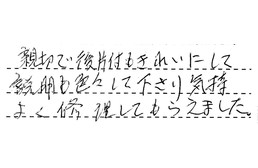 親切で後片付もきれいにして
説明も色々して下さり気持
よく修理してもらえました。